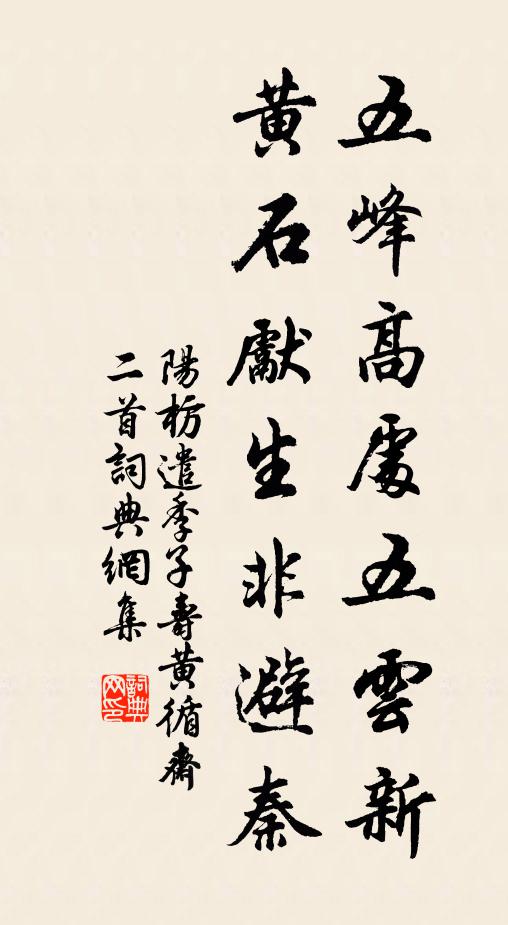 五峰高處五雲新
黃石獻生非避秦
陽枋遣季子壽黃循齋
二首詞典網集
詞典網印